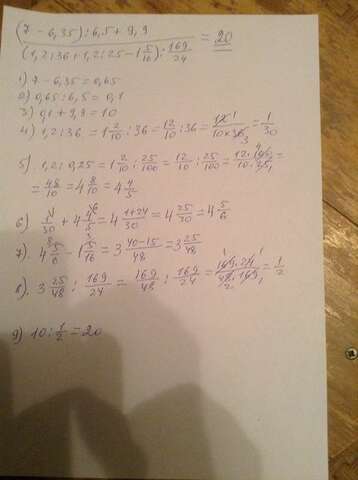 (7 - 6,35) : 6,5 + 9,9
(1,2 : 36 + 1,2 : 25 - 1 5/16) : 169/24 = 20
1) 7 - 6,35 = 0,65
2) 0,65 : 6,5 = 0,1
3) 0,1 + 9,9 = 10
4) 1,2 : 36 = 1 2/10 : 36 = 12/10 : 36 = 12 1/10 × 36 3 = 1/30
5) 1,2 : 0,25 = 1 2/10 : 25/100 = 12/10 : 25/100 = 12 · 100 4/10 · 25 1 =
= 48/10 = 4 8/10 = 4 4/5
6) 1/30 + 4 4/5 6 = 4 1+24/30 = 4 25/30 = 4 5/6
7) 4 5/6 8 - 1 5/16 3 = 3 40-15/48 = 3 25/48
8) 3 25/48 : 169/24 = 169/48 : 169/24 = 169 1 · 24 1/48 2 · 169 1 = 1/2
9) 10 : 1/2 = 20